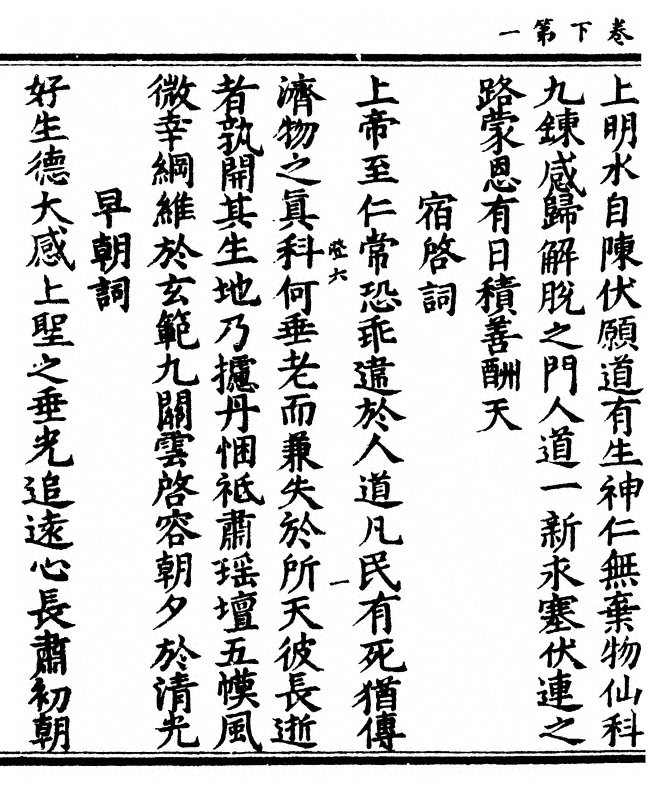 卷下第一
上明水自陳伏願道有生神仁無棄物仙科
九鍊感歸解脫之門人道一新永塞伏連之
路蒙恩有日積善酬天
宿啓詞
上帝至仁常恐乖違於人道凡民有死猶傳
濟物之眞科何垂老而兼失於所天彼長逝
者孰開其生地乃攄丹悃祗肅瑶壇五幙風
微幸綱維於玄範九關雲啓容朝夕於清光
早朝詞
好生德大感上聖之垂光追遠心長肅初朝